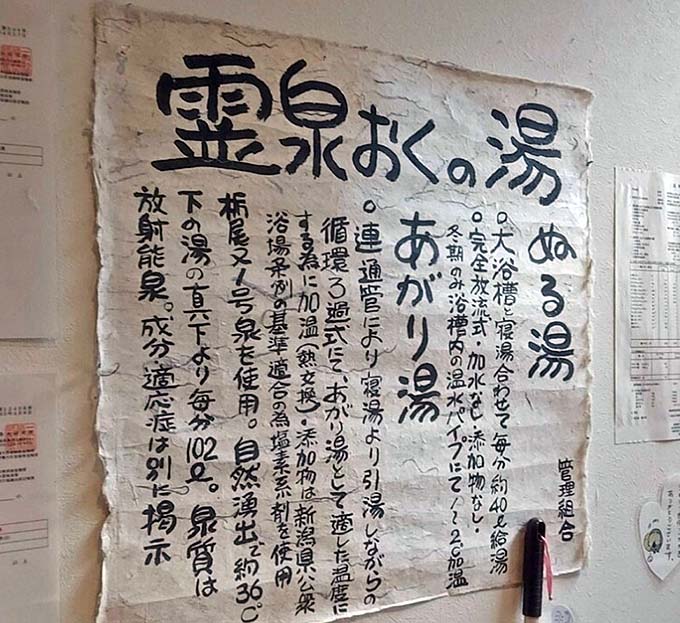 霊泉おくの湯
ぬる湯
。大浴槽と寝湯合わせて毎分約40ℓ給湯
。完全放流式・加水なし・添加物なし・
冬期のみ浴槽内の温水パイプにて1〜2℃加温
あがり湯
。連通管により寝湯より引湯しながらの
循環ろ過式にて、あがり湯として適した温度に
する為に加温(熱交換)・添加物は新潟県公衆
浴場条例の基準適合の為塩素系剤を使用
栃尾又1号泉を使用。自然湧出で約36℃
下の湯の真下より毎分102ℓ。泉質は
放射能泉。成分適応症は別に掲示
管理組合
ありがとう
ございます。